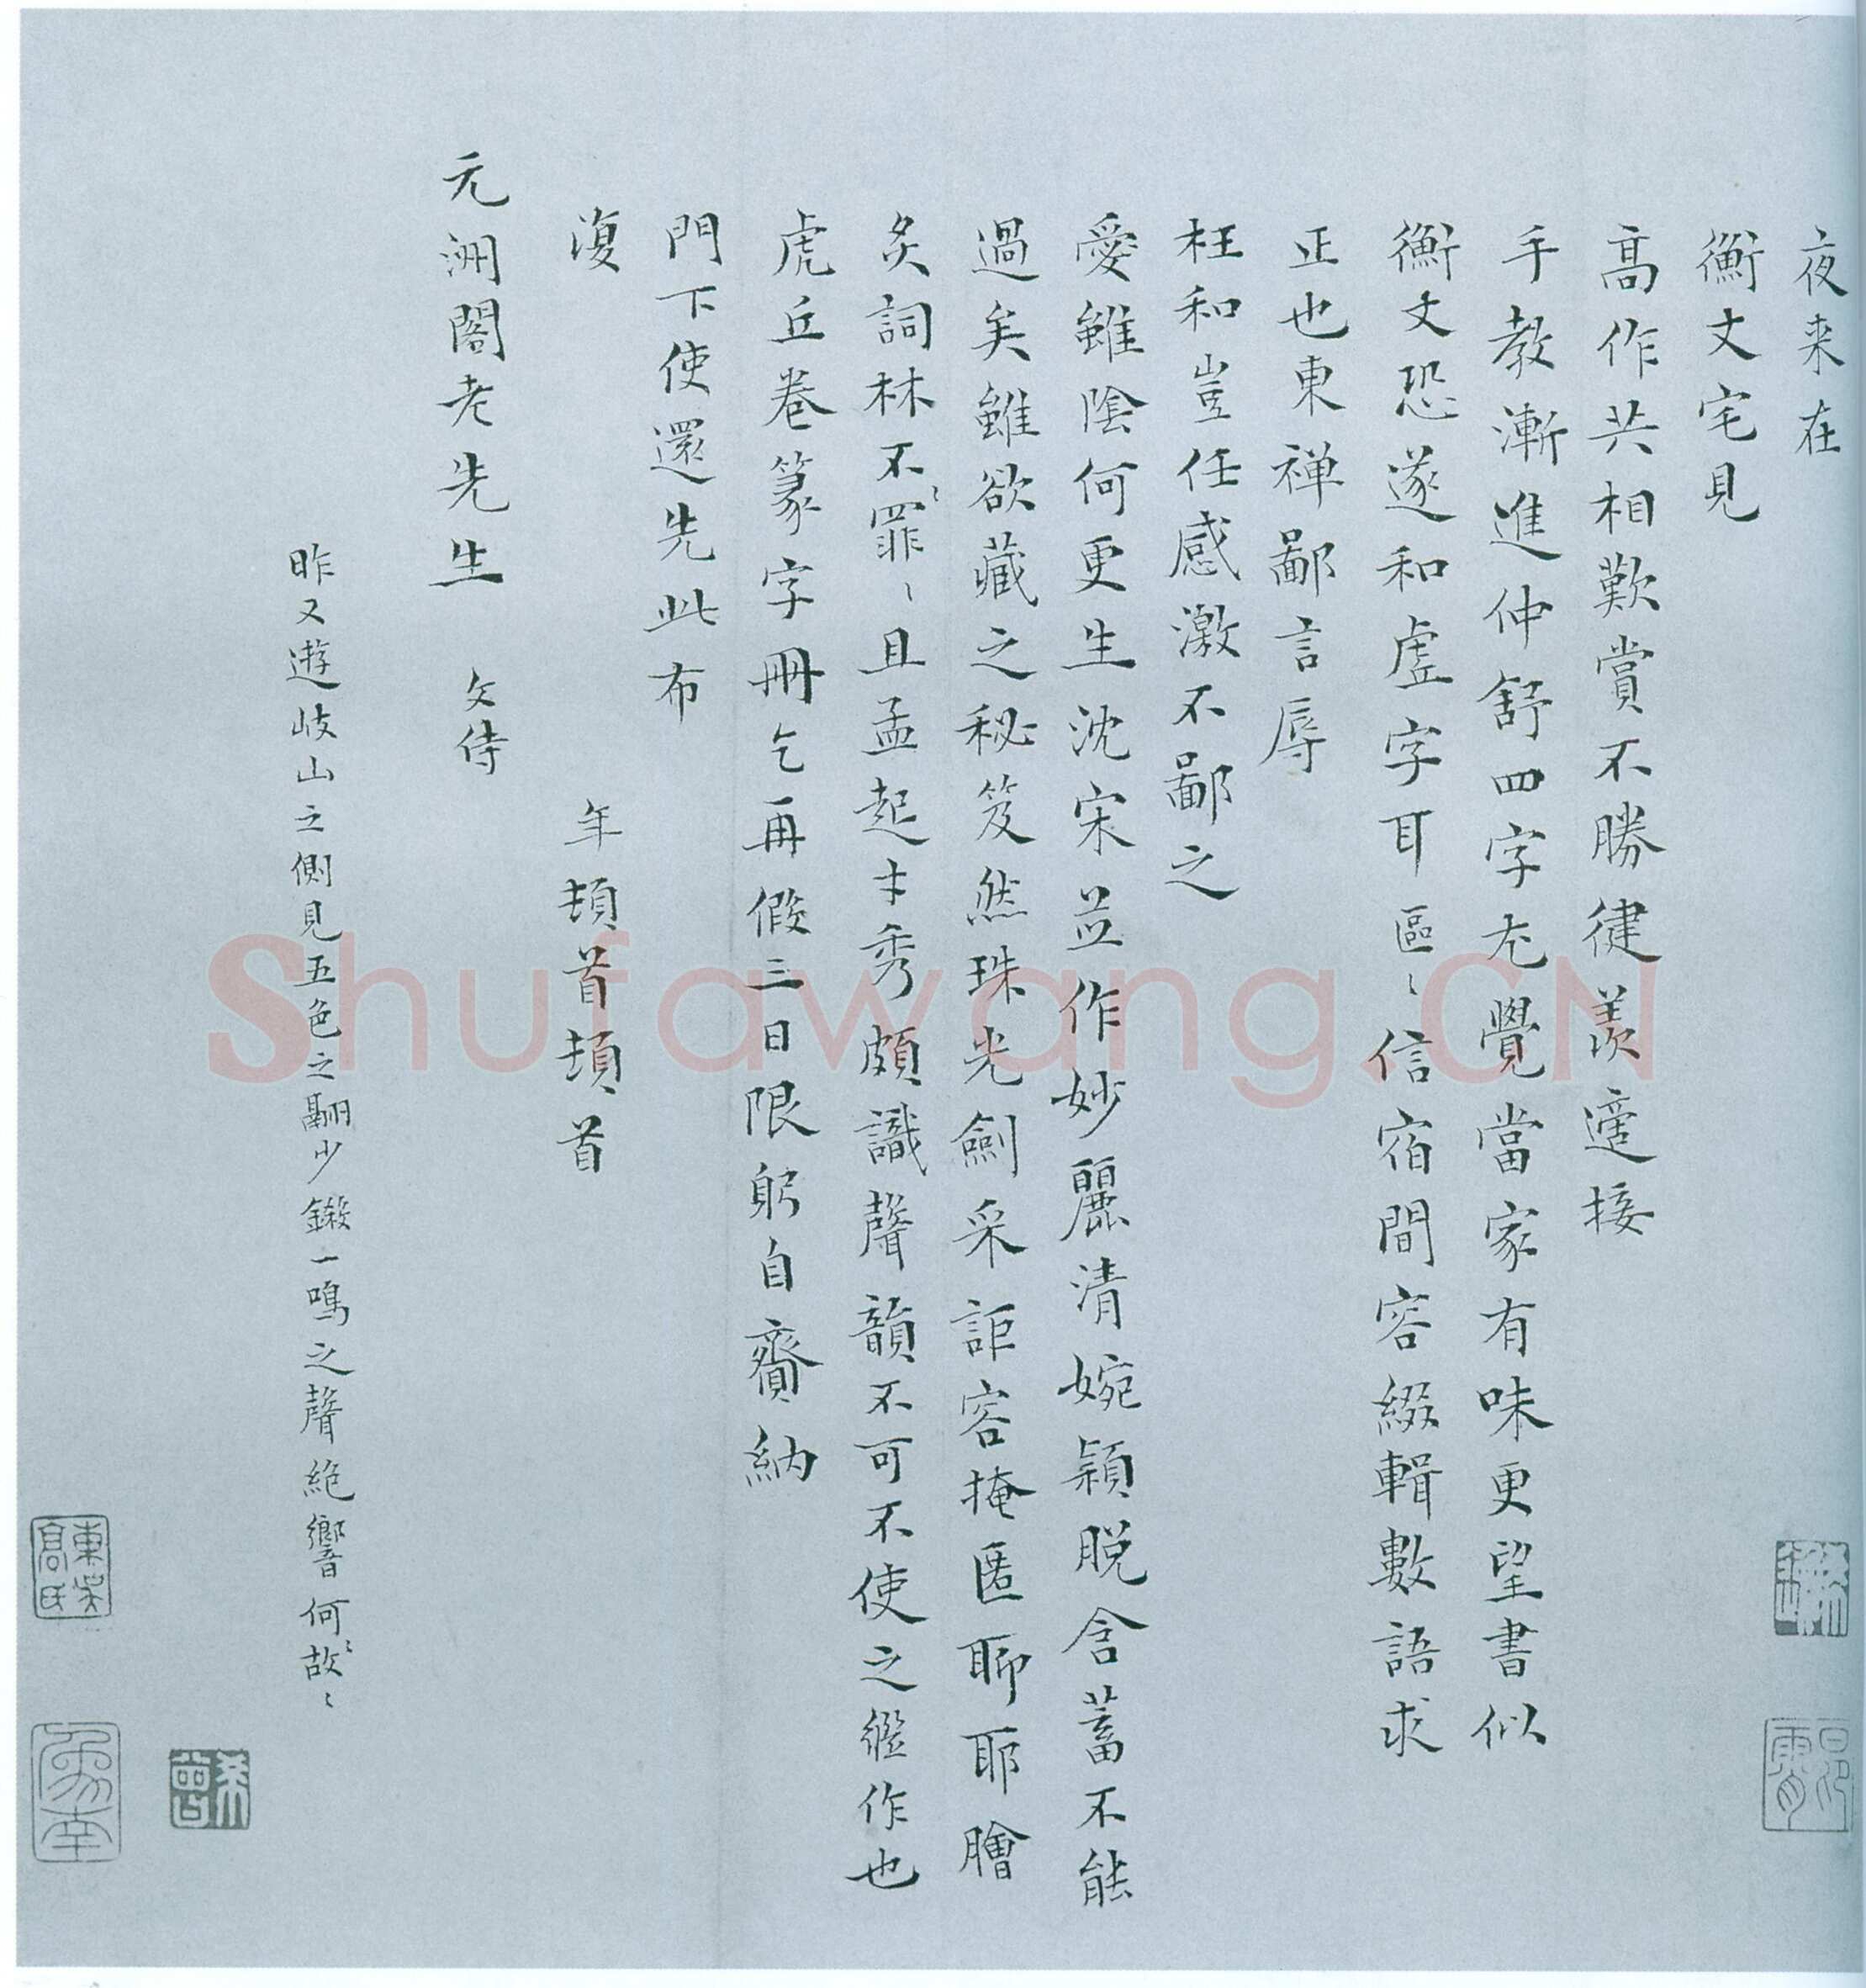 夜来在
衡丈宅見
髙作共相歎賞不勝健羨適接
手教漸進仲舒四字尤覺當家有味更望書似
衡丈恐遂和虚字耳區〻信宿間容綴輯數語求
正也東禅鄙言辱
枉和豈任感激不鄙之
愛雖陰何更生沈宋並作妙麗清婉穎脱含蓄不能
過矣雖欲藏之秘笈然珠光劍采詎容掩匿耶耶膾
炙詞林不〻罪〻且孟起才秀頗識聲韻不可不使之繼作也
虎丘巻篆字冊乞再假三日限躬自齎納
門下使還先此布
復
年頓首頓首
元洲閣老先生 文侍
昨又遊岐山之側見五色之翮少鎩一鳴之聲絶響何〻故〻
東吳
髙氏
Shufawang.CN